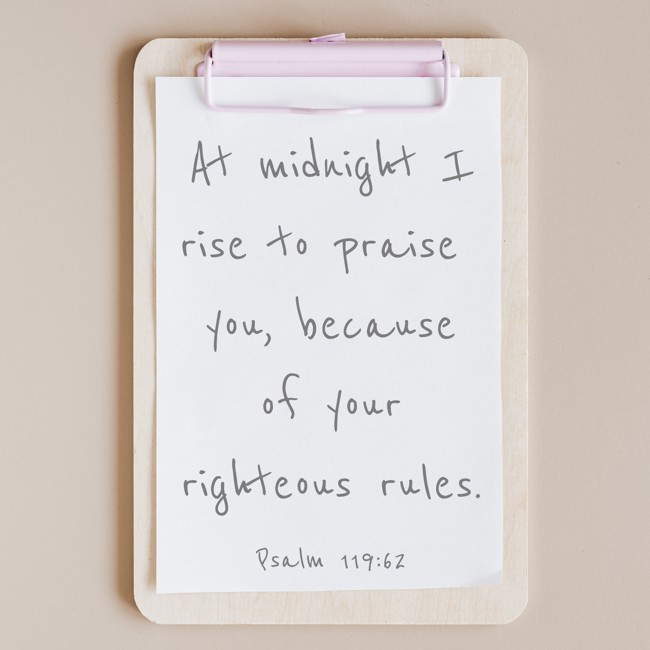 At midnight I
rise to praise
you, because
of your
righteous rules.
Psalm 119:62